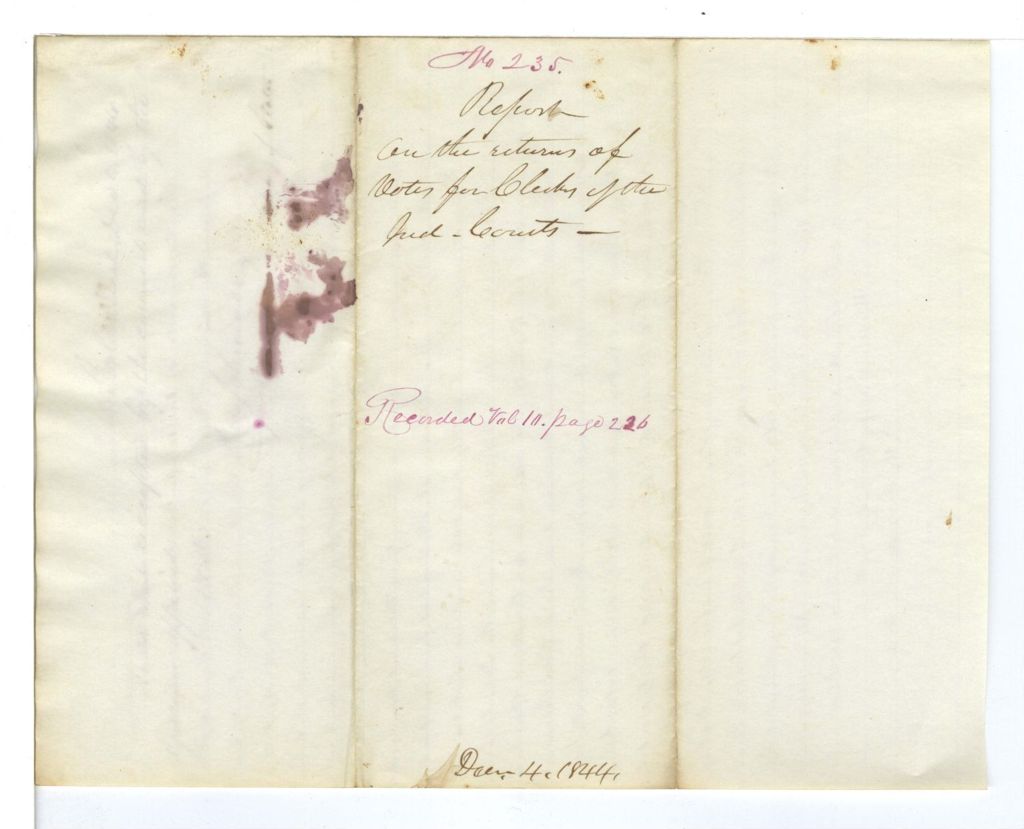 No 235.
Report
on the returns of
Votes for Clerks of the
Jud - Courts -
Recorded Vol 10. page 226
Dec. 4. 1844.